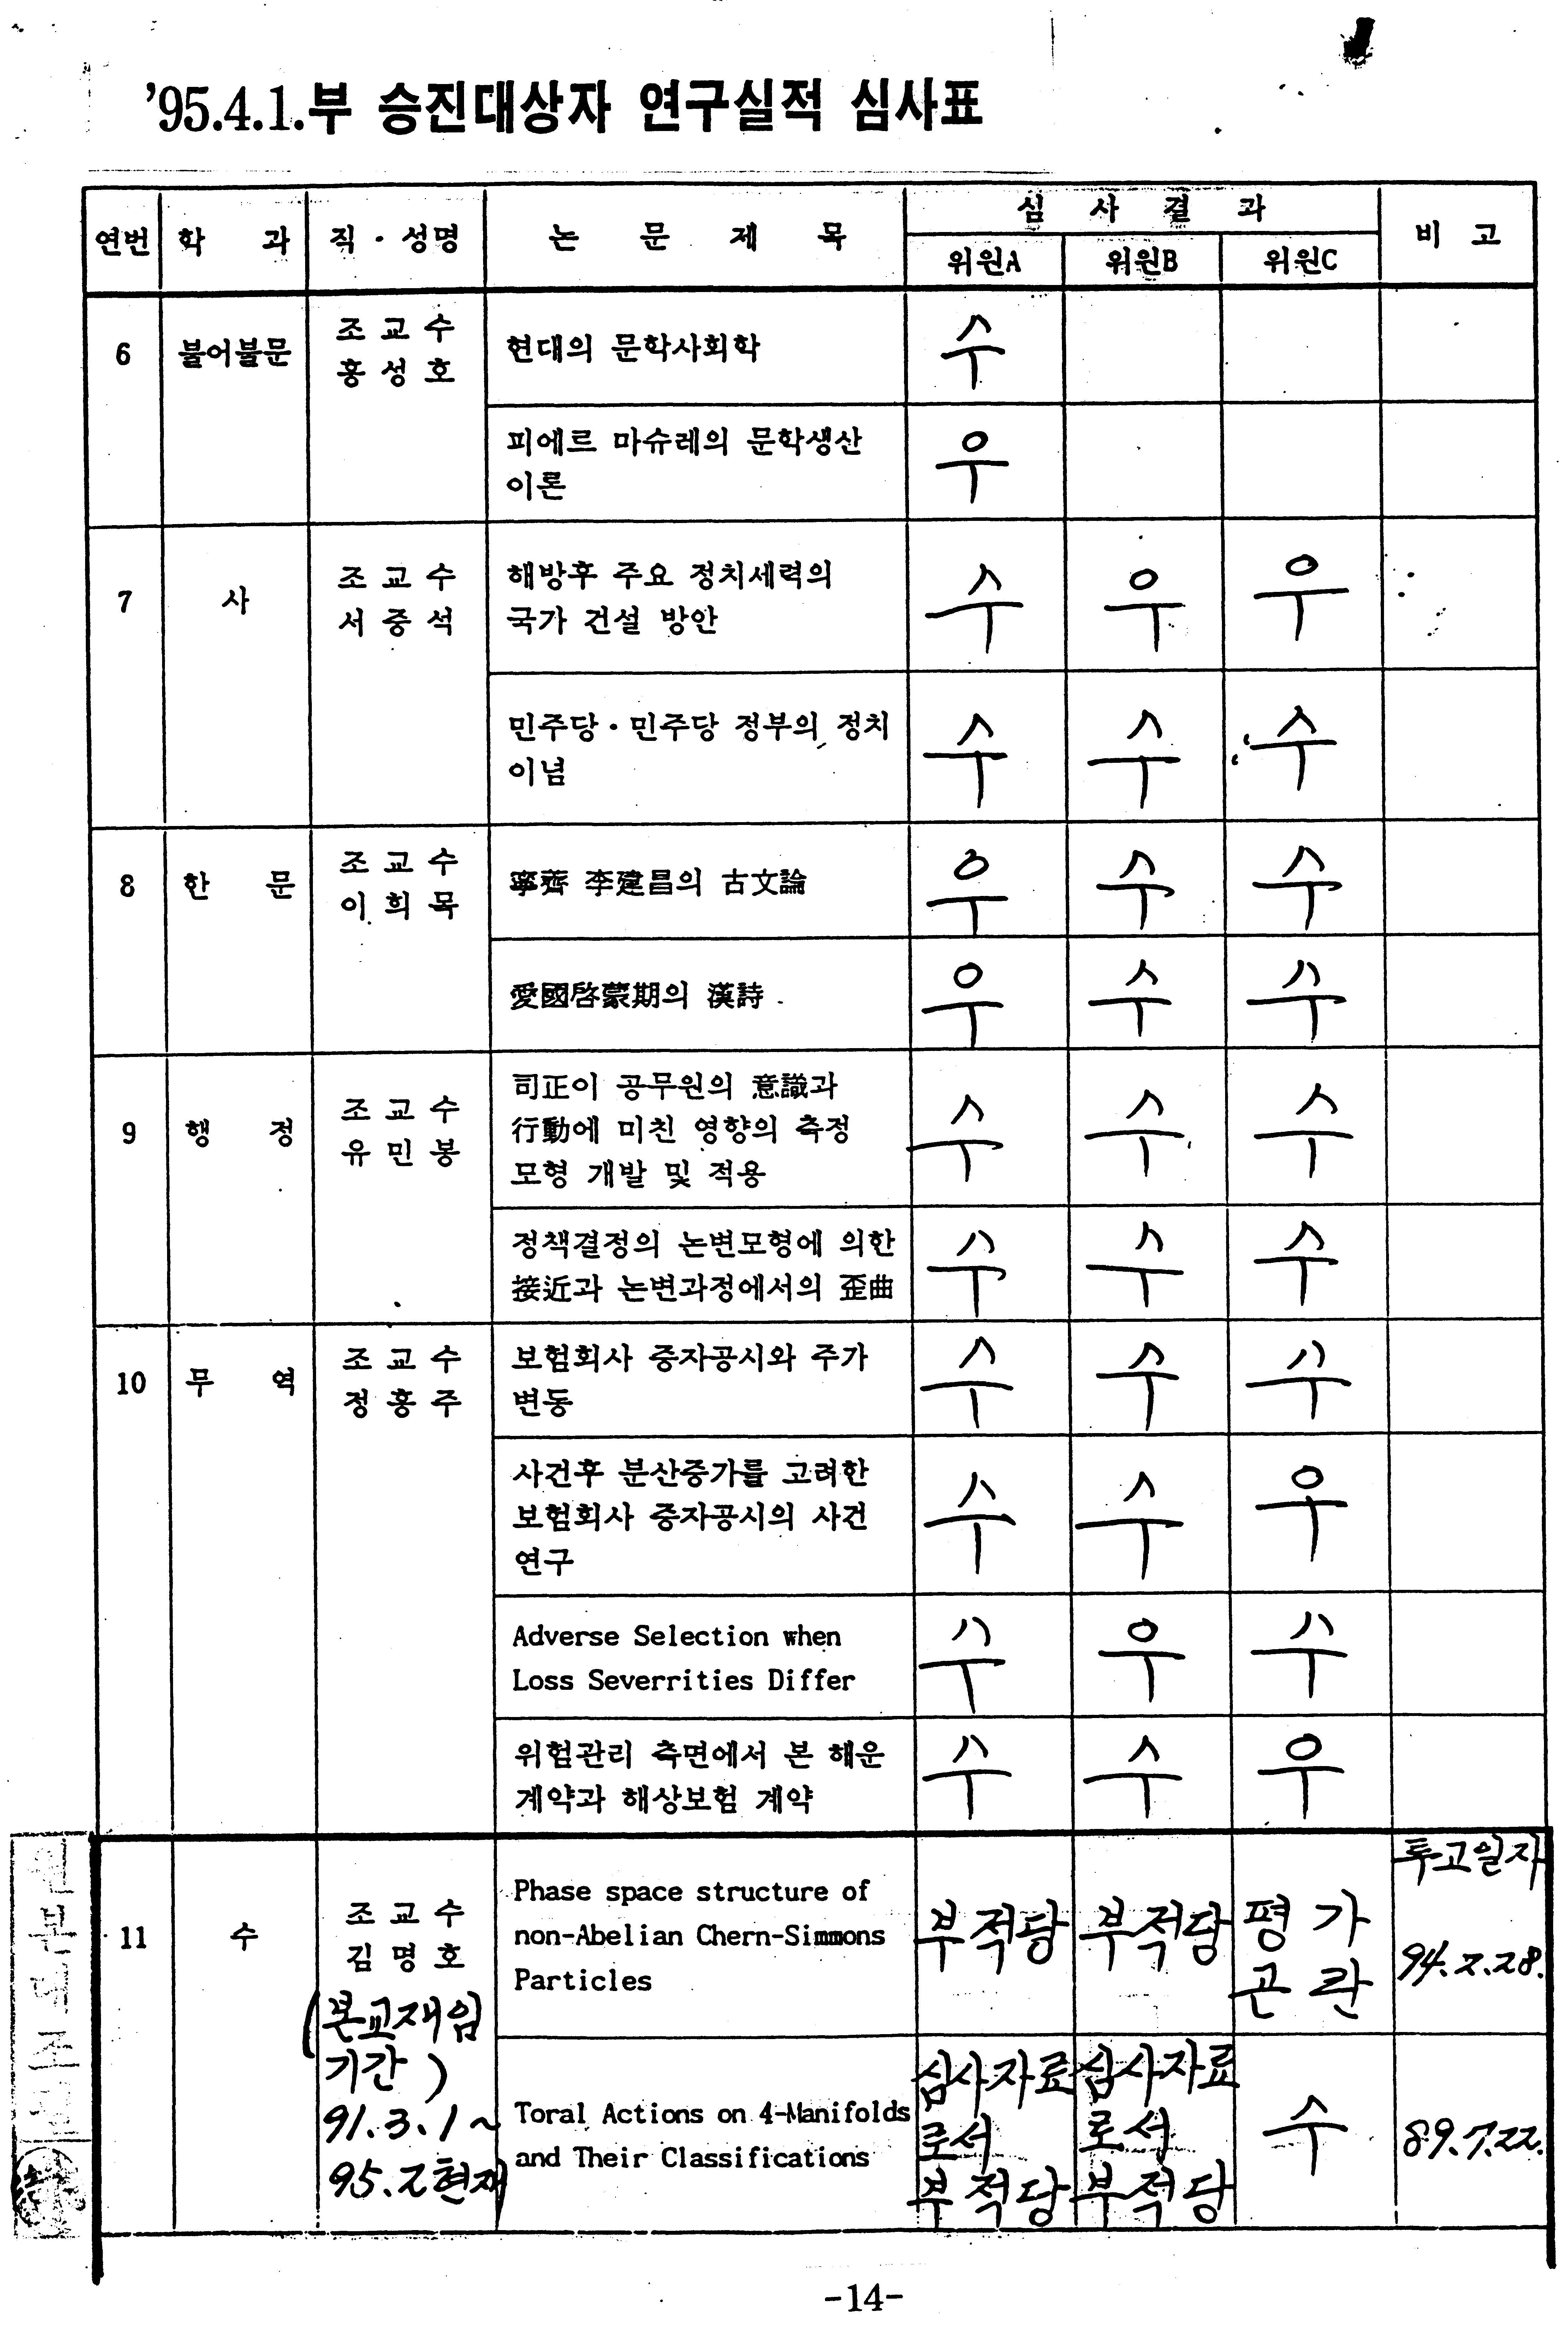 '95.4.1.부 승진대상자 연구실적 심사표
연번 학 과 직 · 성명 논 문 제 목 심 사 결 과 비 고
위원A 위원B 위원C
6 불어불문 조 교 수
홍 성 호
현대의 문학사회학 수
피에르 마슈레의 문학생산
이론
우
7 사 조 교 수
서 중 석
해방후 주요 정치세력의
국가 건설 방안
수 우 우
민주당·민주당 정부의 정치
이념
수 수 수
8 한 문 조 교 수
이 희 목
寧齊 李建昌의 古文論 우 수 수
愛國啓蒙期의 漢詩 우 수 수
9 행 정 조 교 수
유 민 봉
司正이 공무원의 意識과
行動에 미친 영향의 측정
모형 개발 및 적용
수 수 수
정책결정의 논변모형에 의한
接近과 논변과정에서의 歪曲
수 수 수
10 무 역 조 교 수
정 홍 주
보험회사 증자공시와 주가
변동
수 수 수
사건후 분산증가를 고려한
보험회사 증자공시의 사건
연구
수 수 우
Adverse Selection when
Loss Severrities Differ
수 우 수
위험관리 측면에서 본 해운
계약과 해상보험 계약
수 수 우
11 수 조 교 수
김 명 호
(본교재임
기간)
91.3.1~
95.2현재
Phase space structure of
non-Abelian Chern-Simmons
Particles
부적당 부적당 평 가
곤 란
투고일자
94.2.28.
Toral Actions on 4-Manifolds
and Their Classifications
심사자료
로서
부적당
심사자료
로서
부적당
수
89.7.22.
원본대조필
-14-